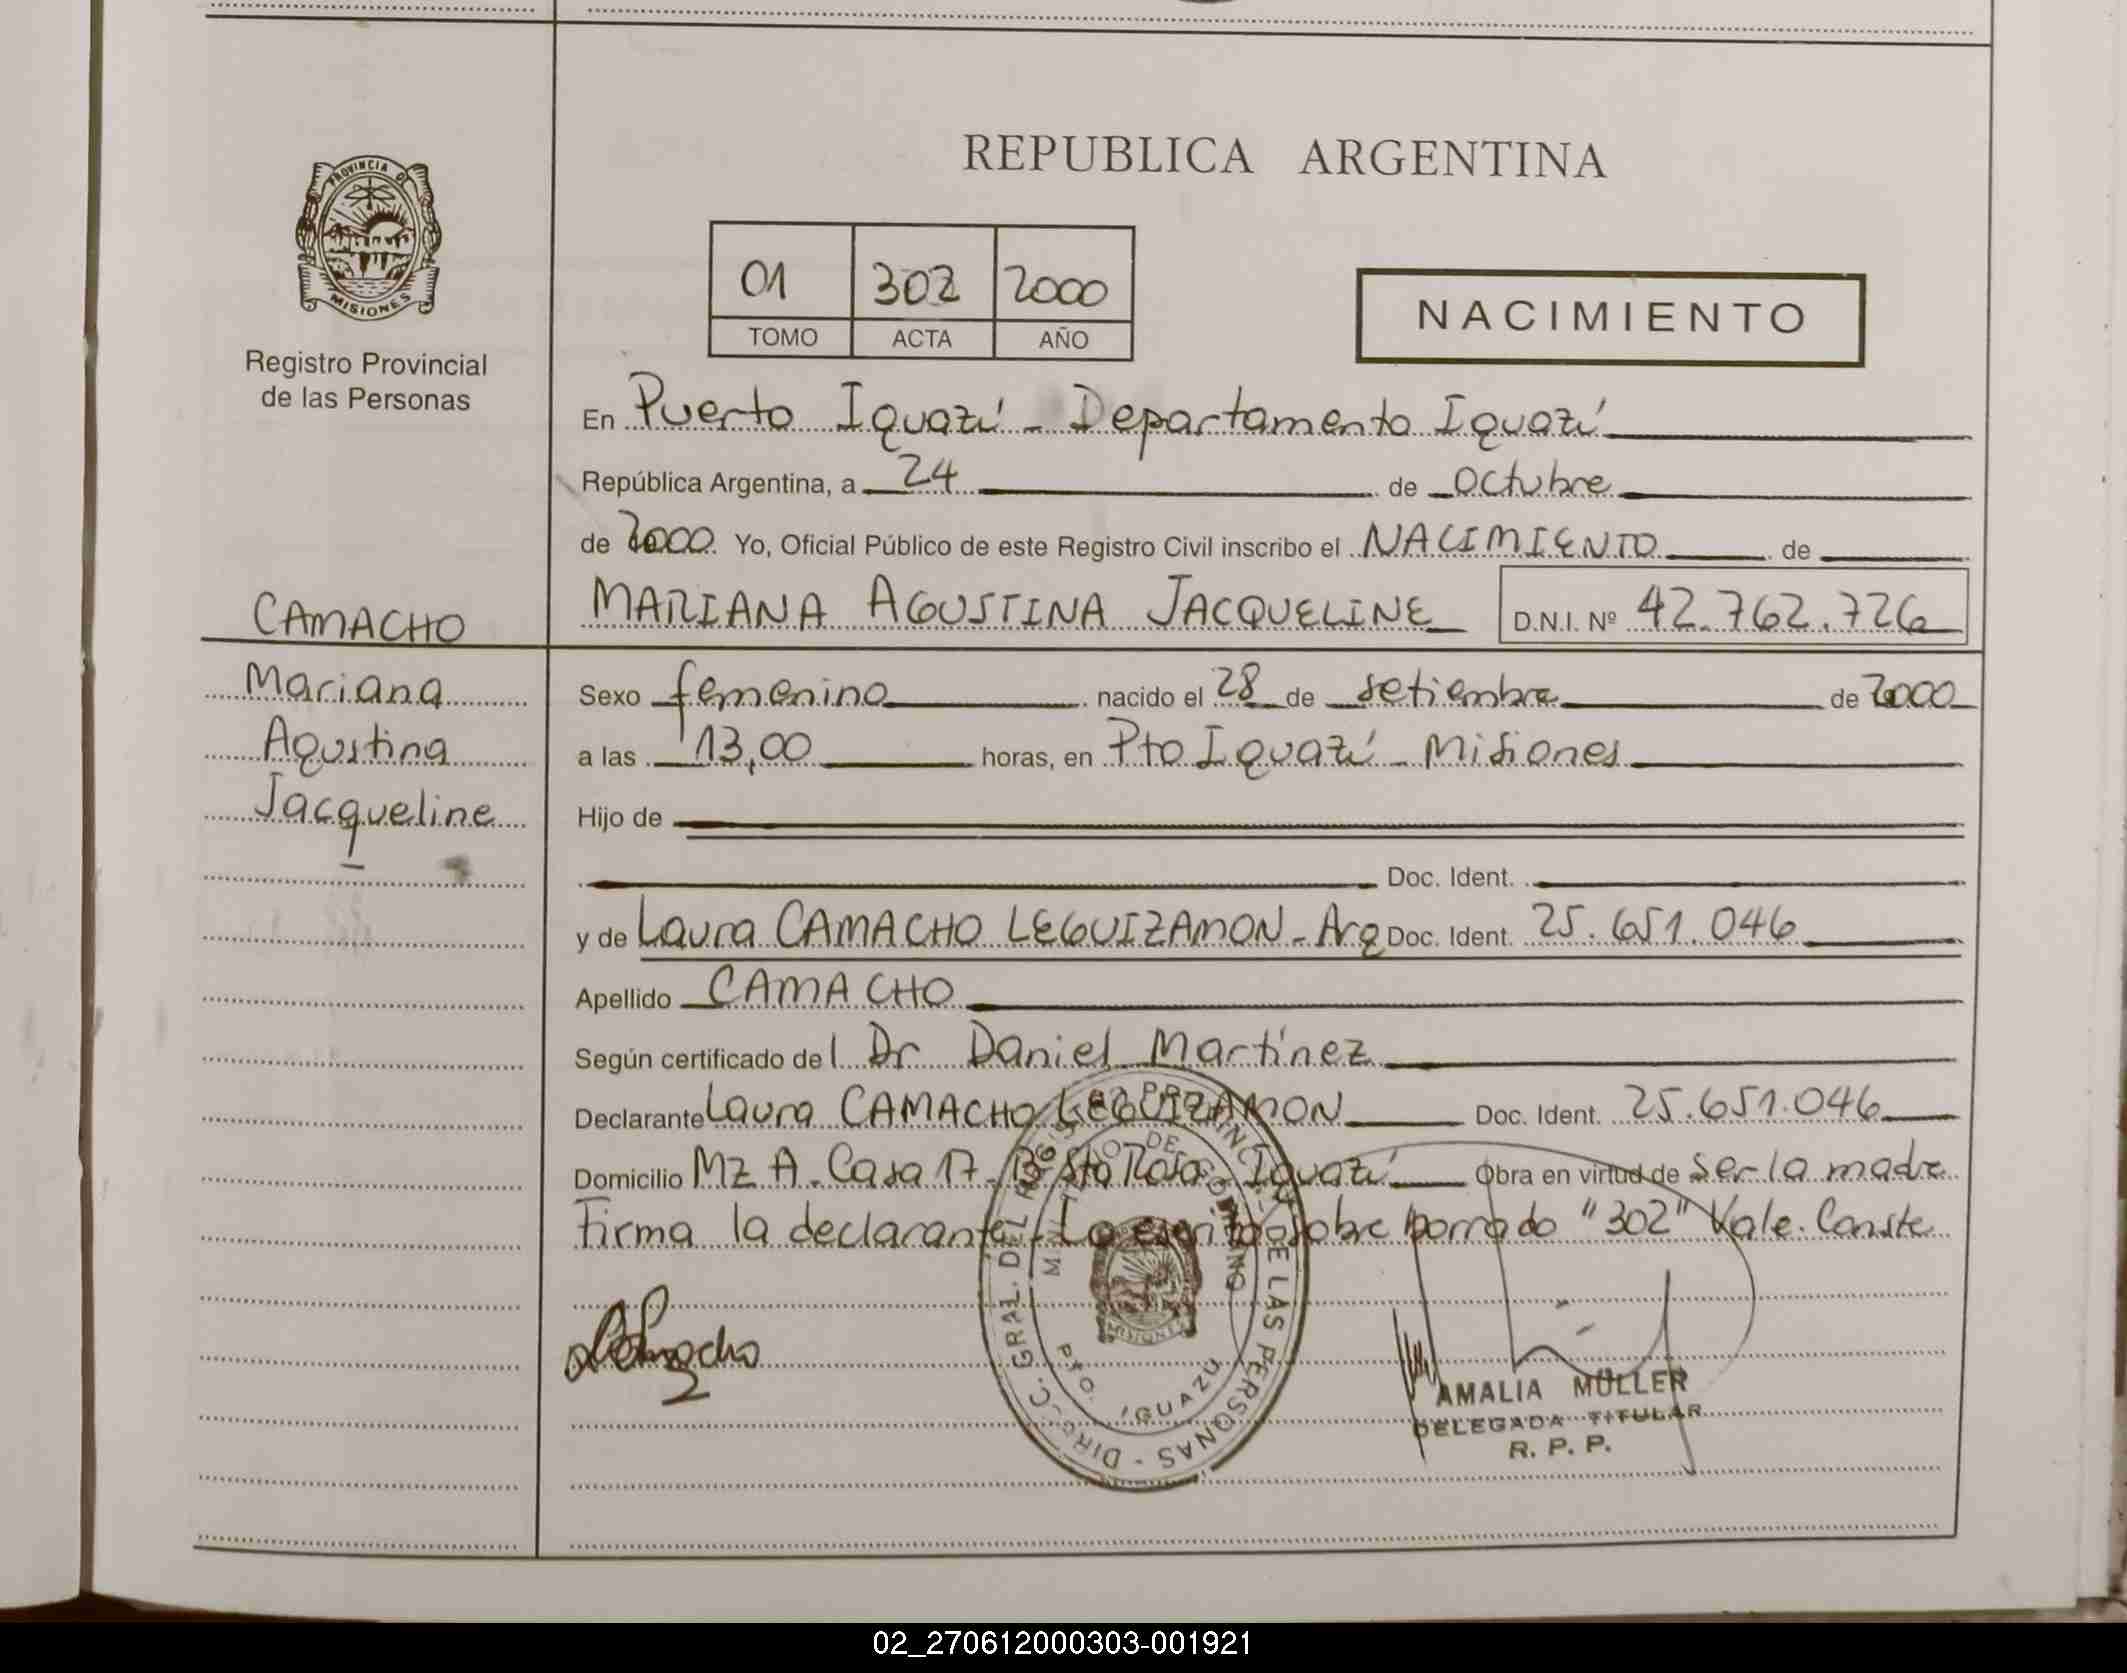 REPUBLICA ARGENTINA
PROVINCIA D
MISIONES
Registro Provincial
de las Personas
01 302 2000
TOMO ACTA AÑO
NACIMIENTO
En Puerto Iguazú - Departamento Iguazú
República Argentina, a 24 de octubre
de 2000. Yo, Oficial Público de este Registro Civil inscribo el NACIMIENTO de
MARIANA AGUSTINA JACQUELINE D.N.I. Nº 42.762.726
CAMACHO
Mariana
Agustina
Jacqueline
Sexo femenino nacido el 28 de setiembre de 2000
a las 13,00 horas, en Pto Iguazú - Misiones
Hijo de
Doc. Ident.
y de Laura CAMACHO LEGUIZAMON - Arg Doc. Ident. 25.651.046
Apellido CAMACHO
Según certificado del Dr Daniel Martínez
Declarante Laura CAMACHO LEGUIZAMON Doc. Ident. 25.651.046
Domicilio Mz A. Casa 17. B° Sta Rosa Iguazú Obra en virtud de ser la madre
Firma la declarante - Lo escrito sobre borrado "302" Vale. Conste
DIRECC. GRAL. DEL REGISTRO PROVINCIAL DE LAS PERSONAS -
MINISTERIO DE GOBIERNO
MISIONES
PTO. IGUAZU
AMALIA MÜLLER
DELEGADA TITULAR
R. P. P.
02_270612000303-001921